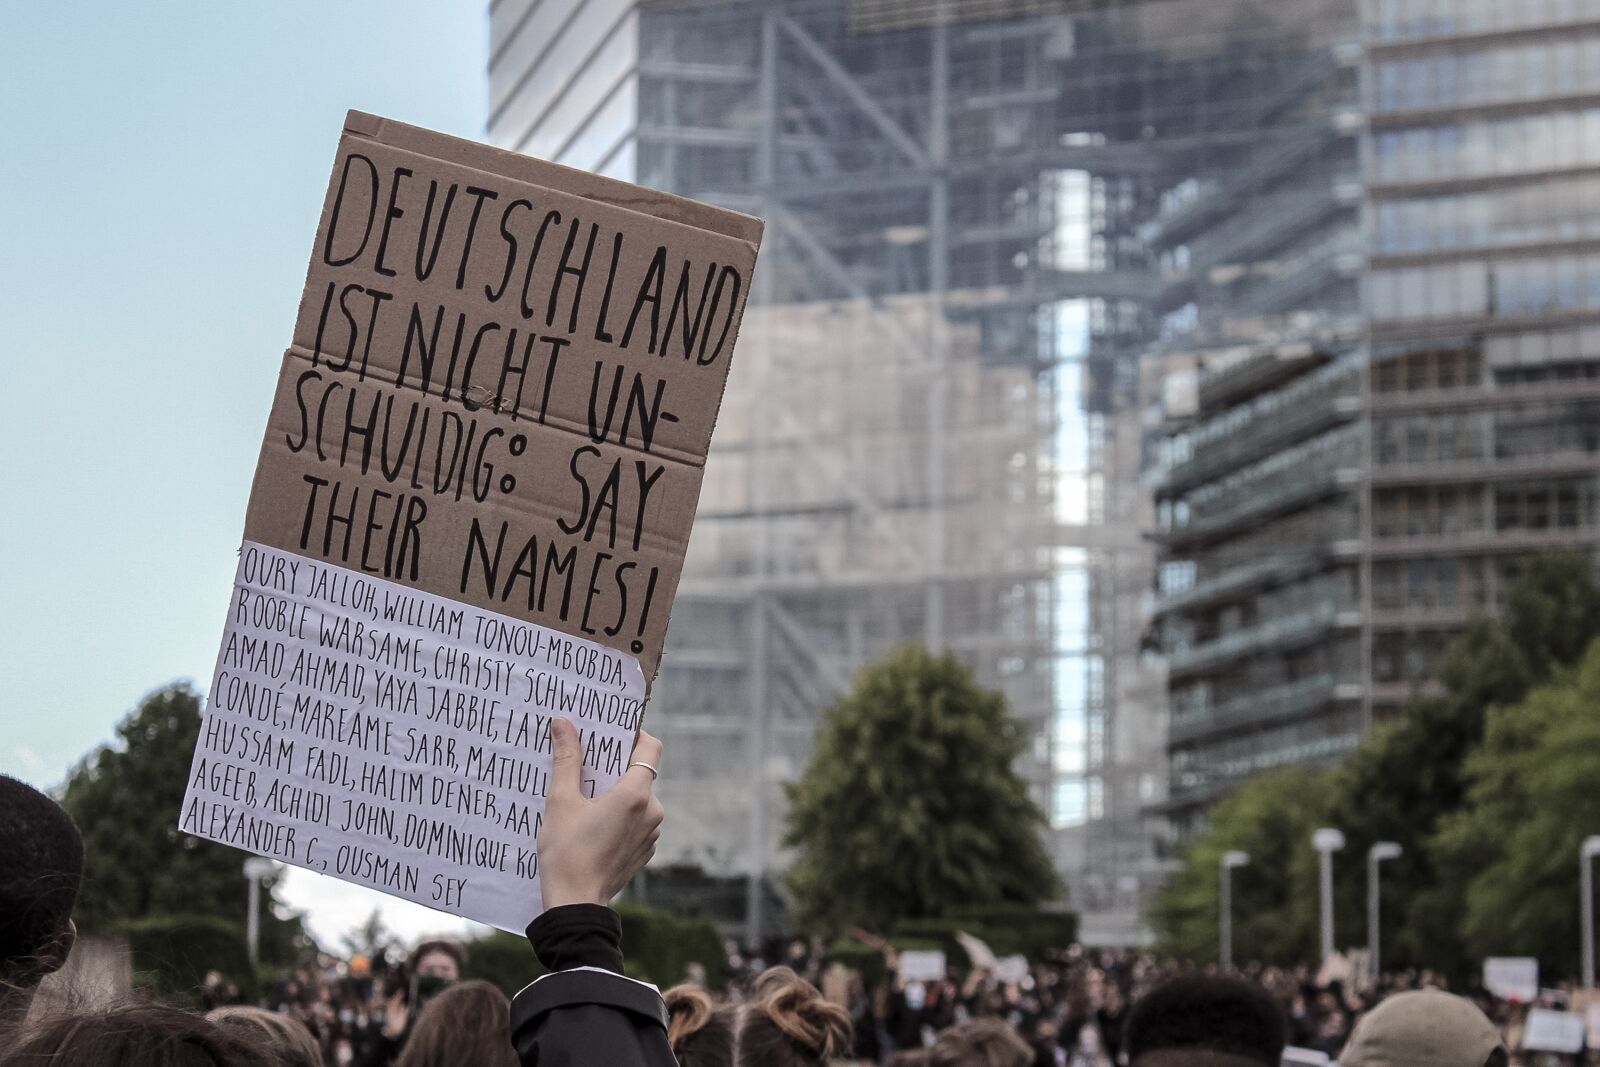 DEUTSCHLAND
IST NICHT UN-
SCHULDIG: SAY
THEIR NAMES!
OURY JALLOH, WILLIAM TONOU-MBOBDA,
ROOBLE WARSAME, CHRISTY SCHWUNDECK
AMAD AHMAD, YAYA JABBIE, LAYA
CONDÉ, MAREAME SARR, MATIULL J
HUSSAM FADL, HALIM DENER, AAM
AGEEB, ACHIDI JOHN, DOMINIQUE KO
ALEXANDER C., OUSMAN SEY